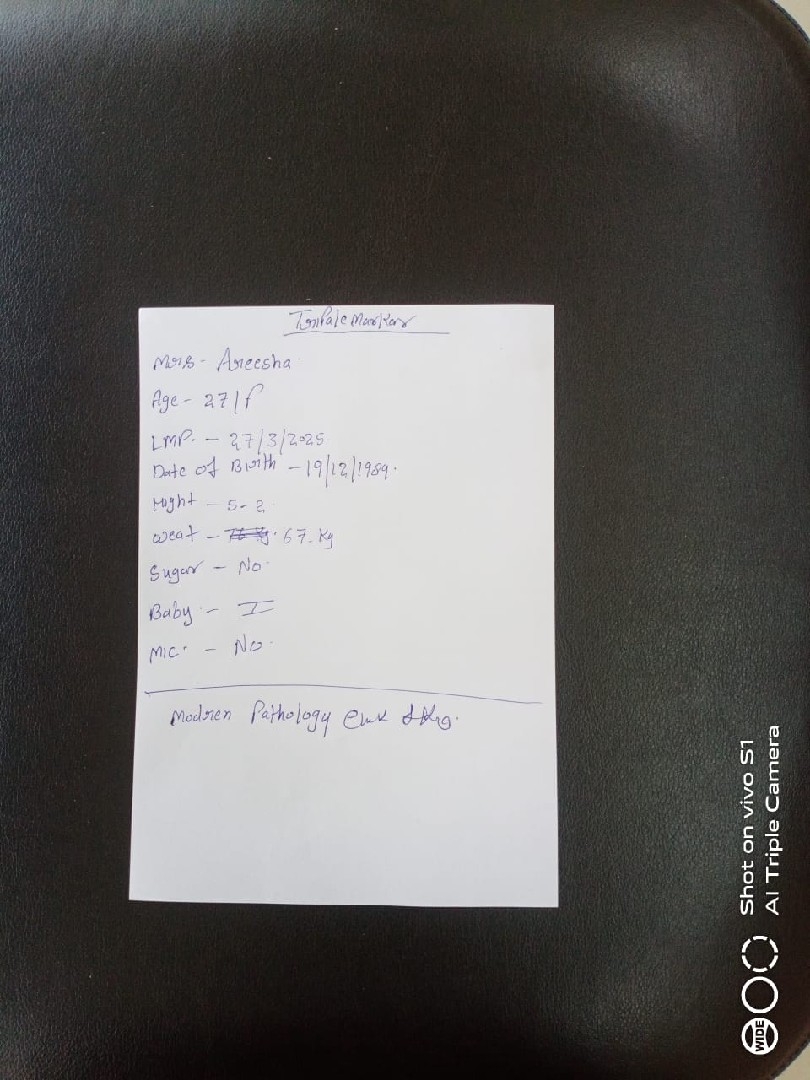 Mrs - Areesha
Age - 27/f
LMP. - 27/3/2025
Date of Birth - 19/12/1989.
Hight - 5-2
Weat - 67.Kg
Sugar - No.
Baby - I
Mic. - No.
Modren Pathology
Shot on vivo S1
AI Triple Camera
WIDE